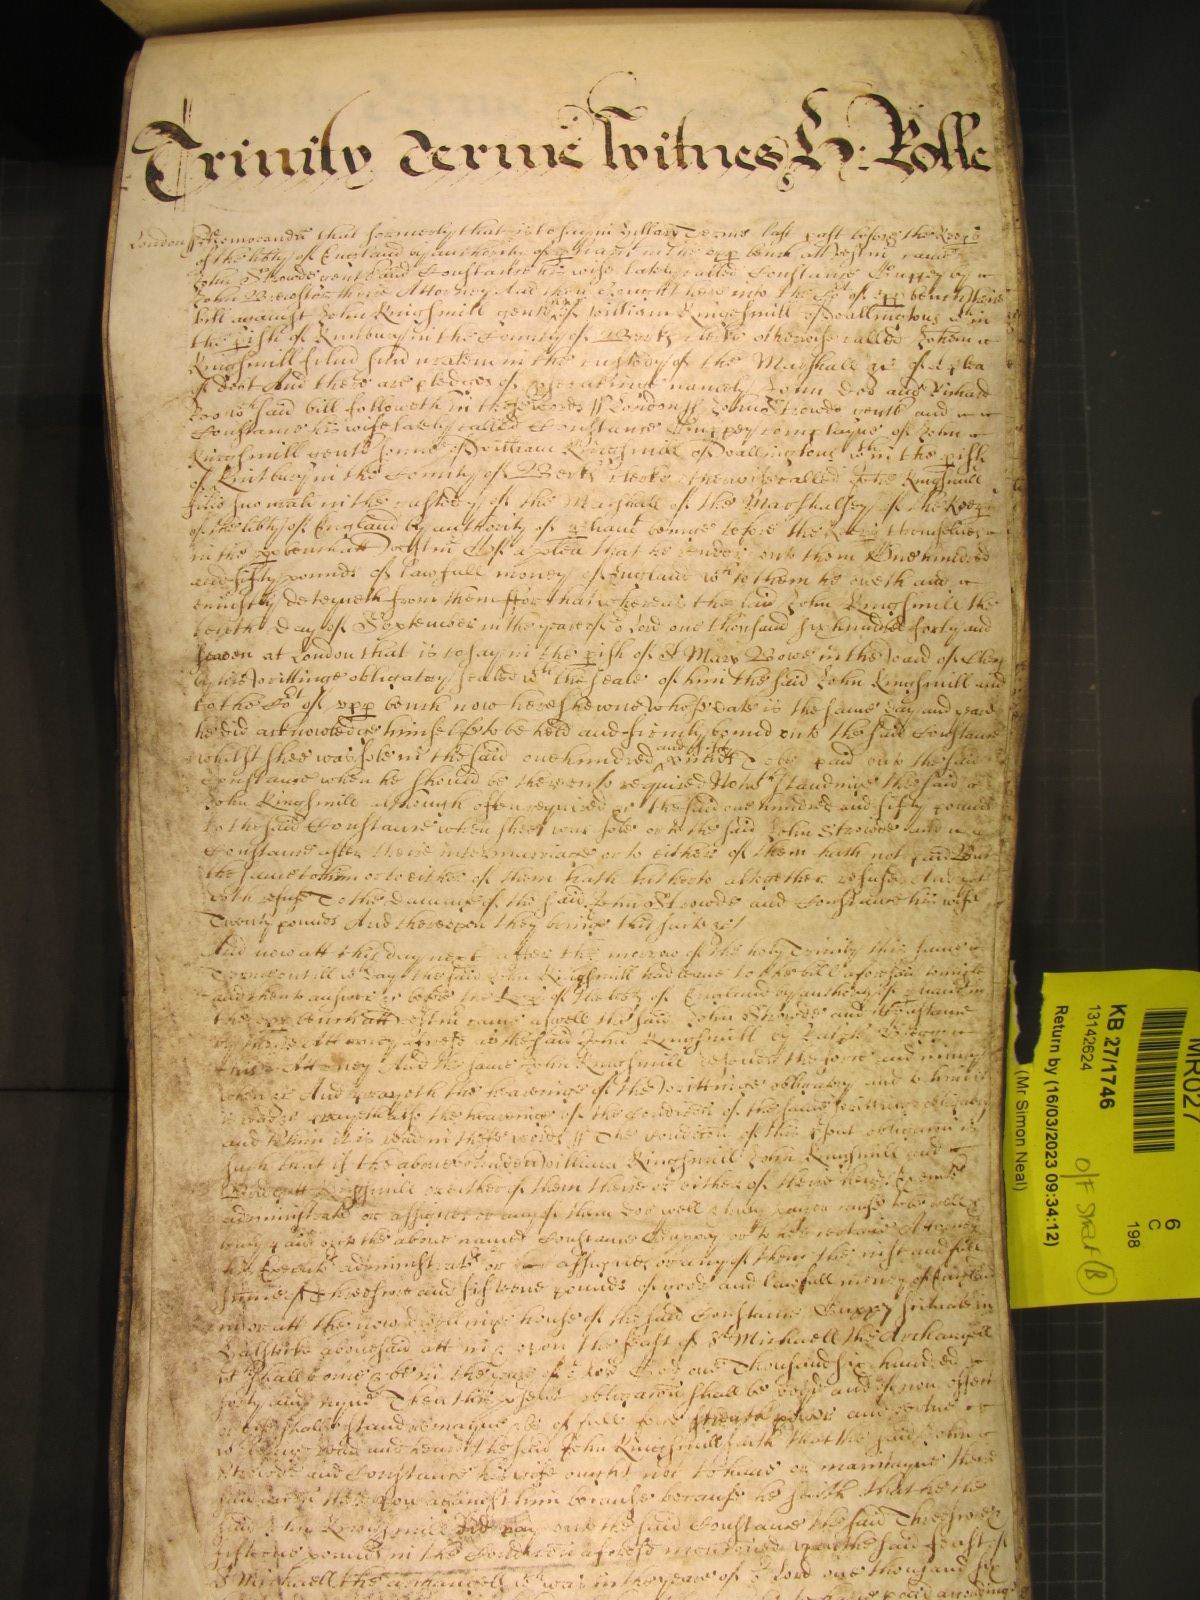 Trinity Terme Witnes H: Rolle
London ss Memorandu that formerly that is to say in Hillary Terme last past before the Keeps
of the libty of England by authority of pliamt in the upp bench att Westm came
John Strowde gent and Constance his wife lately called Constance Guppey by
John Brewster theire Attorney And then brought here into the Cort of upp bench theire
bill against John Kingsmill gent sonne of William Kingesmill of Wallingtons wch in
the pish of Kintbury in the County of Berks clerke otherwise called Johem
Kingsmill filiu suu natem in the custody of the Marshall &c of a plea
of debt And there are pledges of prosecuting namely John Doe and Richard
Roo wch said bill followeth in these words ss London ss John Strowde gent and
Constance his wife lately called Constance Guppey complayne of John
Kingsmill gent sonne of William Kingsmill of Wallingtons wthin the pish
of Kintbury in the County of Berks clerke otherwise called John Kingsmill
filiu suu natu in the custody of the Marshall of the Marshalsey of the Keeps
of the libty of England by authority of pliamt beinge before the Keeps themselves
in the upp bench att Westm of a plea that he render unto them One hundred
and fifty pounds of lawfull money of England wch to them he oweth and
uniustly deteyneth from them ffor that whereas the said John Kingsmill the
tenth day of September in the yeare of or Lord one thousand six hundred forty and
seaven at London that is to say in the pish of St Mary Bowe in the Ward of Cheap
by his Writtinge obligatory sealed wth the seale of him the said John Kingsmill and
to the Cort of upp bench now here shewne whose date is the same day and yeare
he did acknowledge himselfe to be held and firmely bound unto the said Constance
whilst shee was sole in the said one hundred and fifty pounds To be paid unto the said
Constance when he should be thereunto required Notwthstandinge the said
John Kingsmill although often required &c the said one hundred and fifty pounds
to the said Constance when shee was sole or to the said John Strowde and
Constance after theire intermarriage or to either of them hath not paid But
the same to them or to either of them hath hitherto altogether refused And yet
doth refuse To the damage of the said John Strowde and Constance his wife
Twenty pounds And thereupon they bringe this suite &c
And now att this day next after the morrow of the holy Trinity this same
Terme untill wch day the said John Kingsmill had leave to the bill aforesaid to imparle
and then to answer &c before the Keeps of the libty of England by authority of pliamt in
the upp bench att Westm came aswell the said John Strowde and Constance
by theire Attorney aforesd as the said John Kingsmill by
his Attorney And the same John Kingsmill defendeth the force and iniury
when &c And prayeth the hearinge of the Writtinge obligatory and to him it
is read &c prayeth also the hearinge of the Condicon of the same Writtinge obligatory
and to him it is read in these words ss The Condicon of this psent obligacon is
such that if the above bounden William Kingsmill John Kingsmill and
Kingsmill or either of them theire or either of theire heires Executs
administrats or assignes or any of them doe well & truly pay or cause to be well &
truly paid unto the above named Constance Guppey or to her certaine Attorney
her Executs administrats or assignes or any of them the iust and full
summe of Threescore and fifteene pounds of good and lawfull money of England
in or att the now dwellinge house of the said Constance Guppy situate in
abovesaid att in & upon the feast of St Michaell the Archangell
wch shall come & be in the yeare of or Lord God one Thousand six hundred
forty and nyne Then this psent obligacon shall be voyd and of non effect
or els shall stand & remayne &c of full force strenth power and vertue &c
wch being read and heard the said John Kingsmill saith that the said John
Strowde and Constance his wife ought not to have or maintayne theire
said accon thereupon against him because because he saith that he the
said John Kingsmill did pay unto the said Constance the said Threescore &
fifteene pounds in the Condicon aforesd mentioned upon the said feast of
St Michaell the archangell wch was in the yeare of or Lord one thousand six
MR027
6
C
198
KB 27/1746
13142624
Return by (16/03/2023 09:34:12)
(Mr Simon Neal)